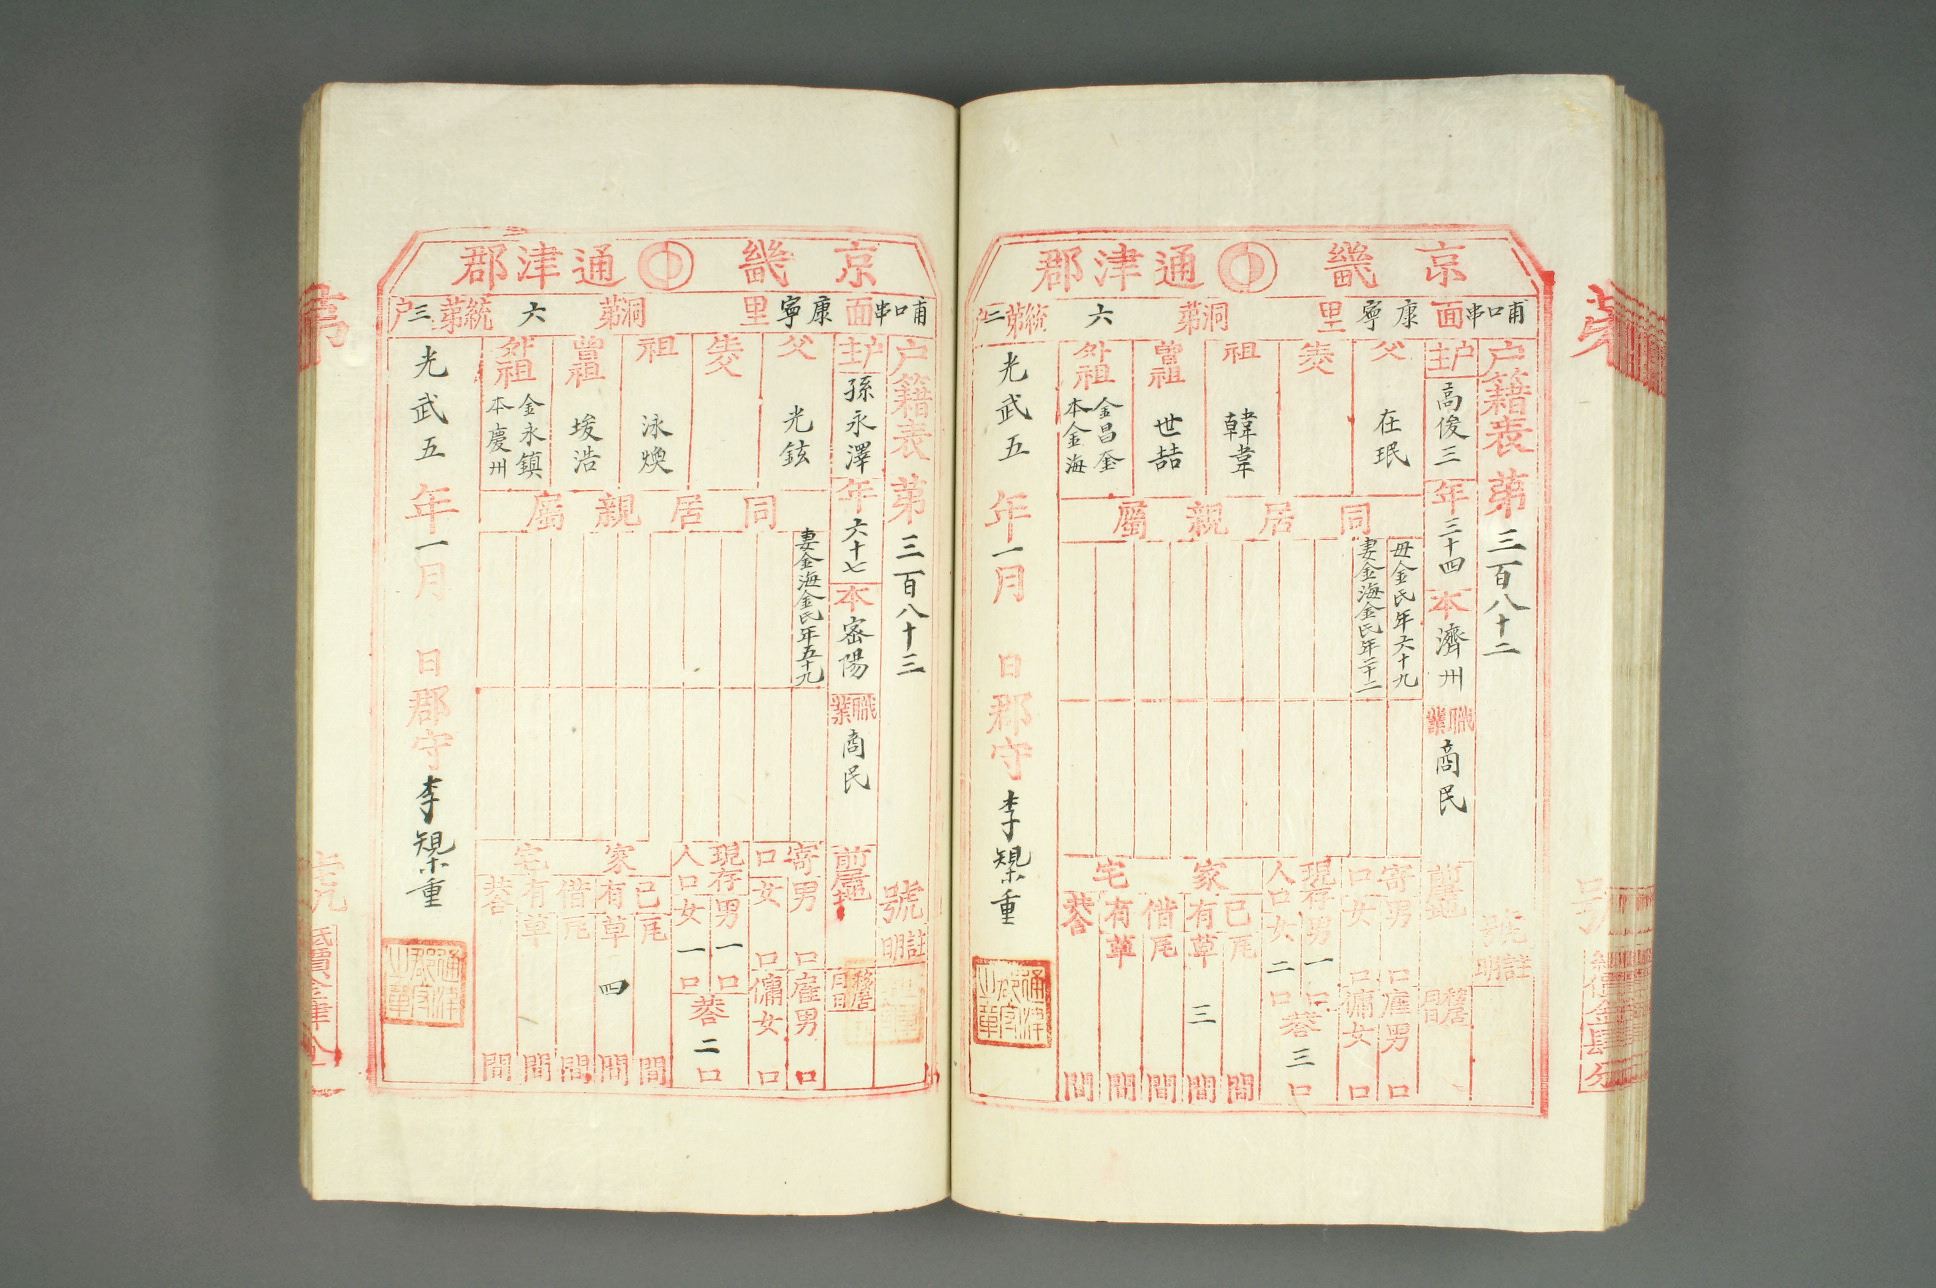 京畿 通津郡
甫口串面 康寧里 洞第六統第二戶
戶籍表 第三百八十二號
註明
戶主 高俊三 年三十四 本濟州 職業 商民
前居地
移居月日
父 在珉
生父
祖 韓葦
曾祖 世喆
外祖 金昌奎 本金海
同居親屬
母金氏年六十九
妻金海金氏年二十二
寄口 男 口 女 口
雇男 口 傭女 口
現存人口 男一口 女二口 共合三口
家宅
己有 瓦 間 草三間
借有 瓦 間 草 間
共合 間
光武五年一月 日 郡守 李槼重
通津郡守之章
京畿 通津郡
甫口串面 康寧里 洞第六統第三戶
戶籍表 第三百八十三號
註明
戶主 孫永澤 年六十七 本密陽 職業 商民
前居地
移居月日
父 光鉉
生父
祖 泳煥
曾祖 埈浩
外祖 金永鎮 本慶州
同居親屬
妻金海金氏年五十九
寄口 男 口 女 口
雇男 口 傭女 口
現存人口 男一口 女一口 共合二口
家宅
己有 瓦 間 草四間
借有 瓦 間 草 間
共合 間
光武五年一月 日 郡守 李槼重
通津郡守之章